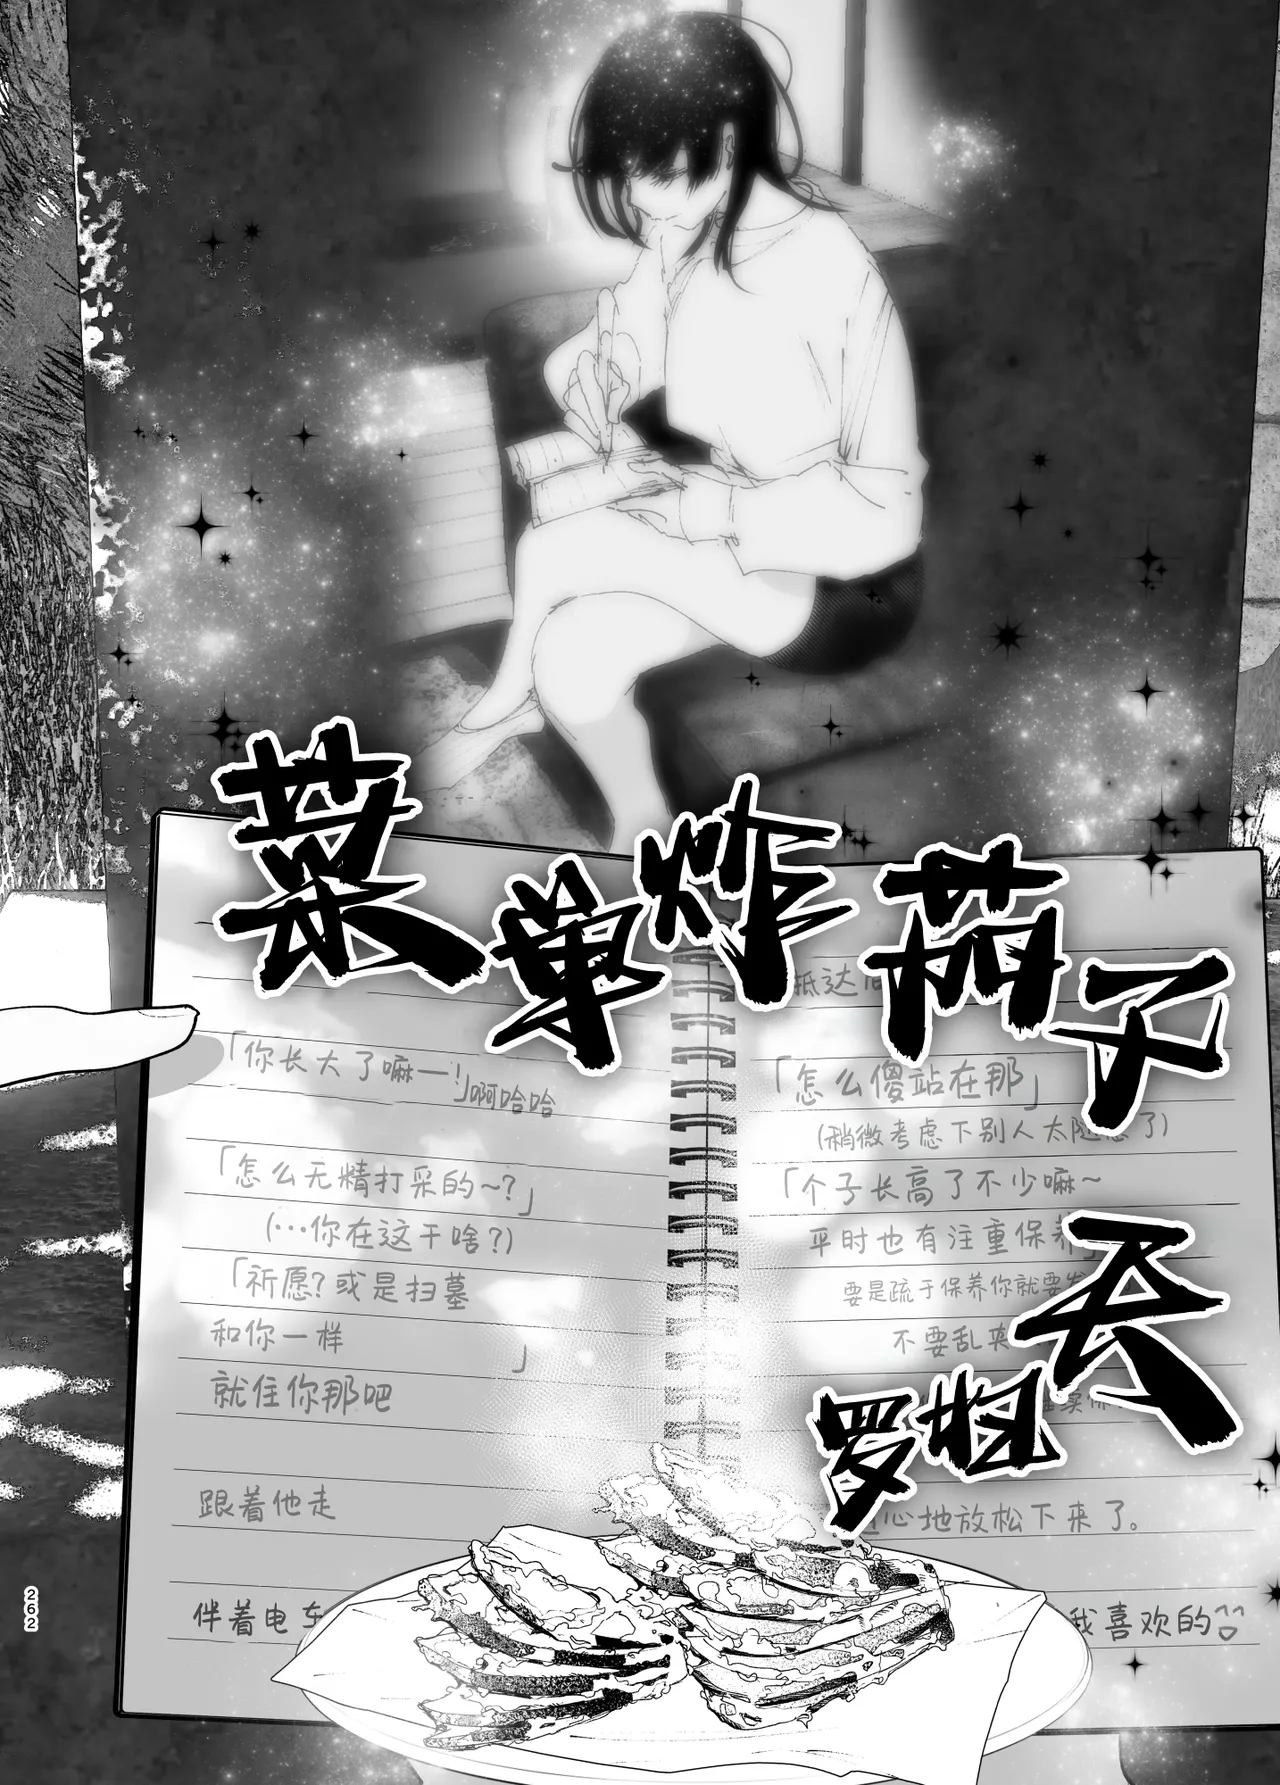 菜单炸茄子
天
罗妇
「你长大了嘛—!」啊哈哈
「怎么无精打采的~?」
(…你在这干啥?)
「祈愿?或是扫墓
和你一样」
就住你那吧
跟着他走
伴着电车
抵达
「怎么傻站在那」
(稍微考虑下别人太随意了)
「个子长高了不少嘛~
平时也有注重保养
要是疏于保养你就要发
不要乱来
心地放松下来了。
我喜欢的
262